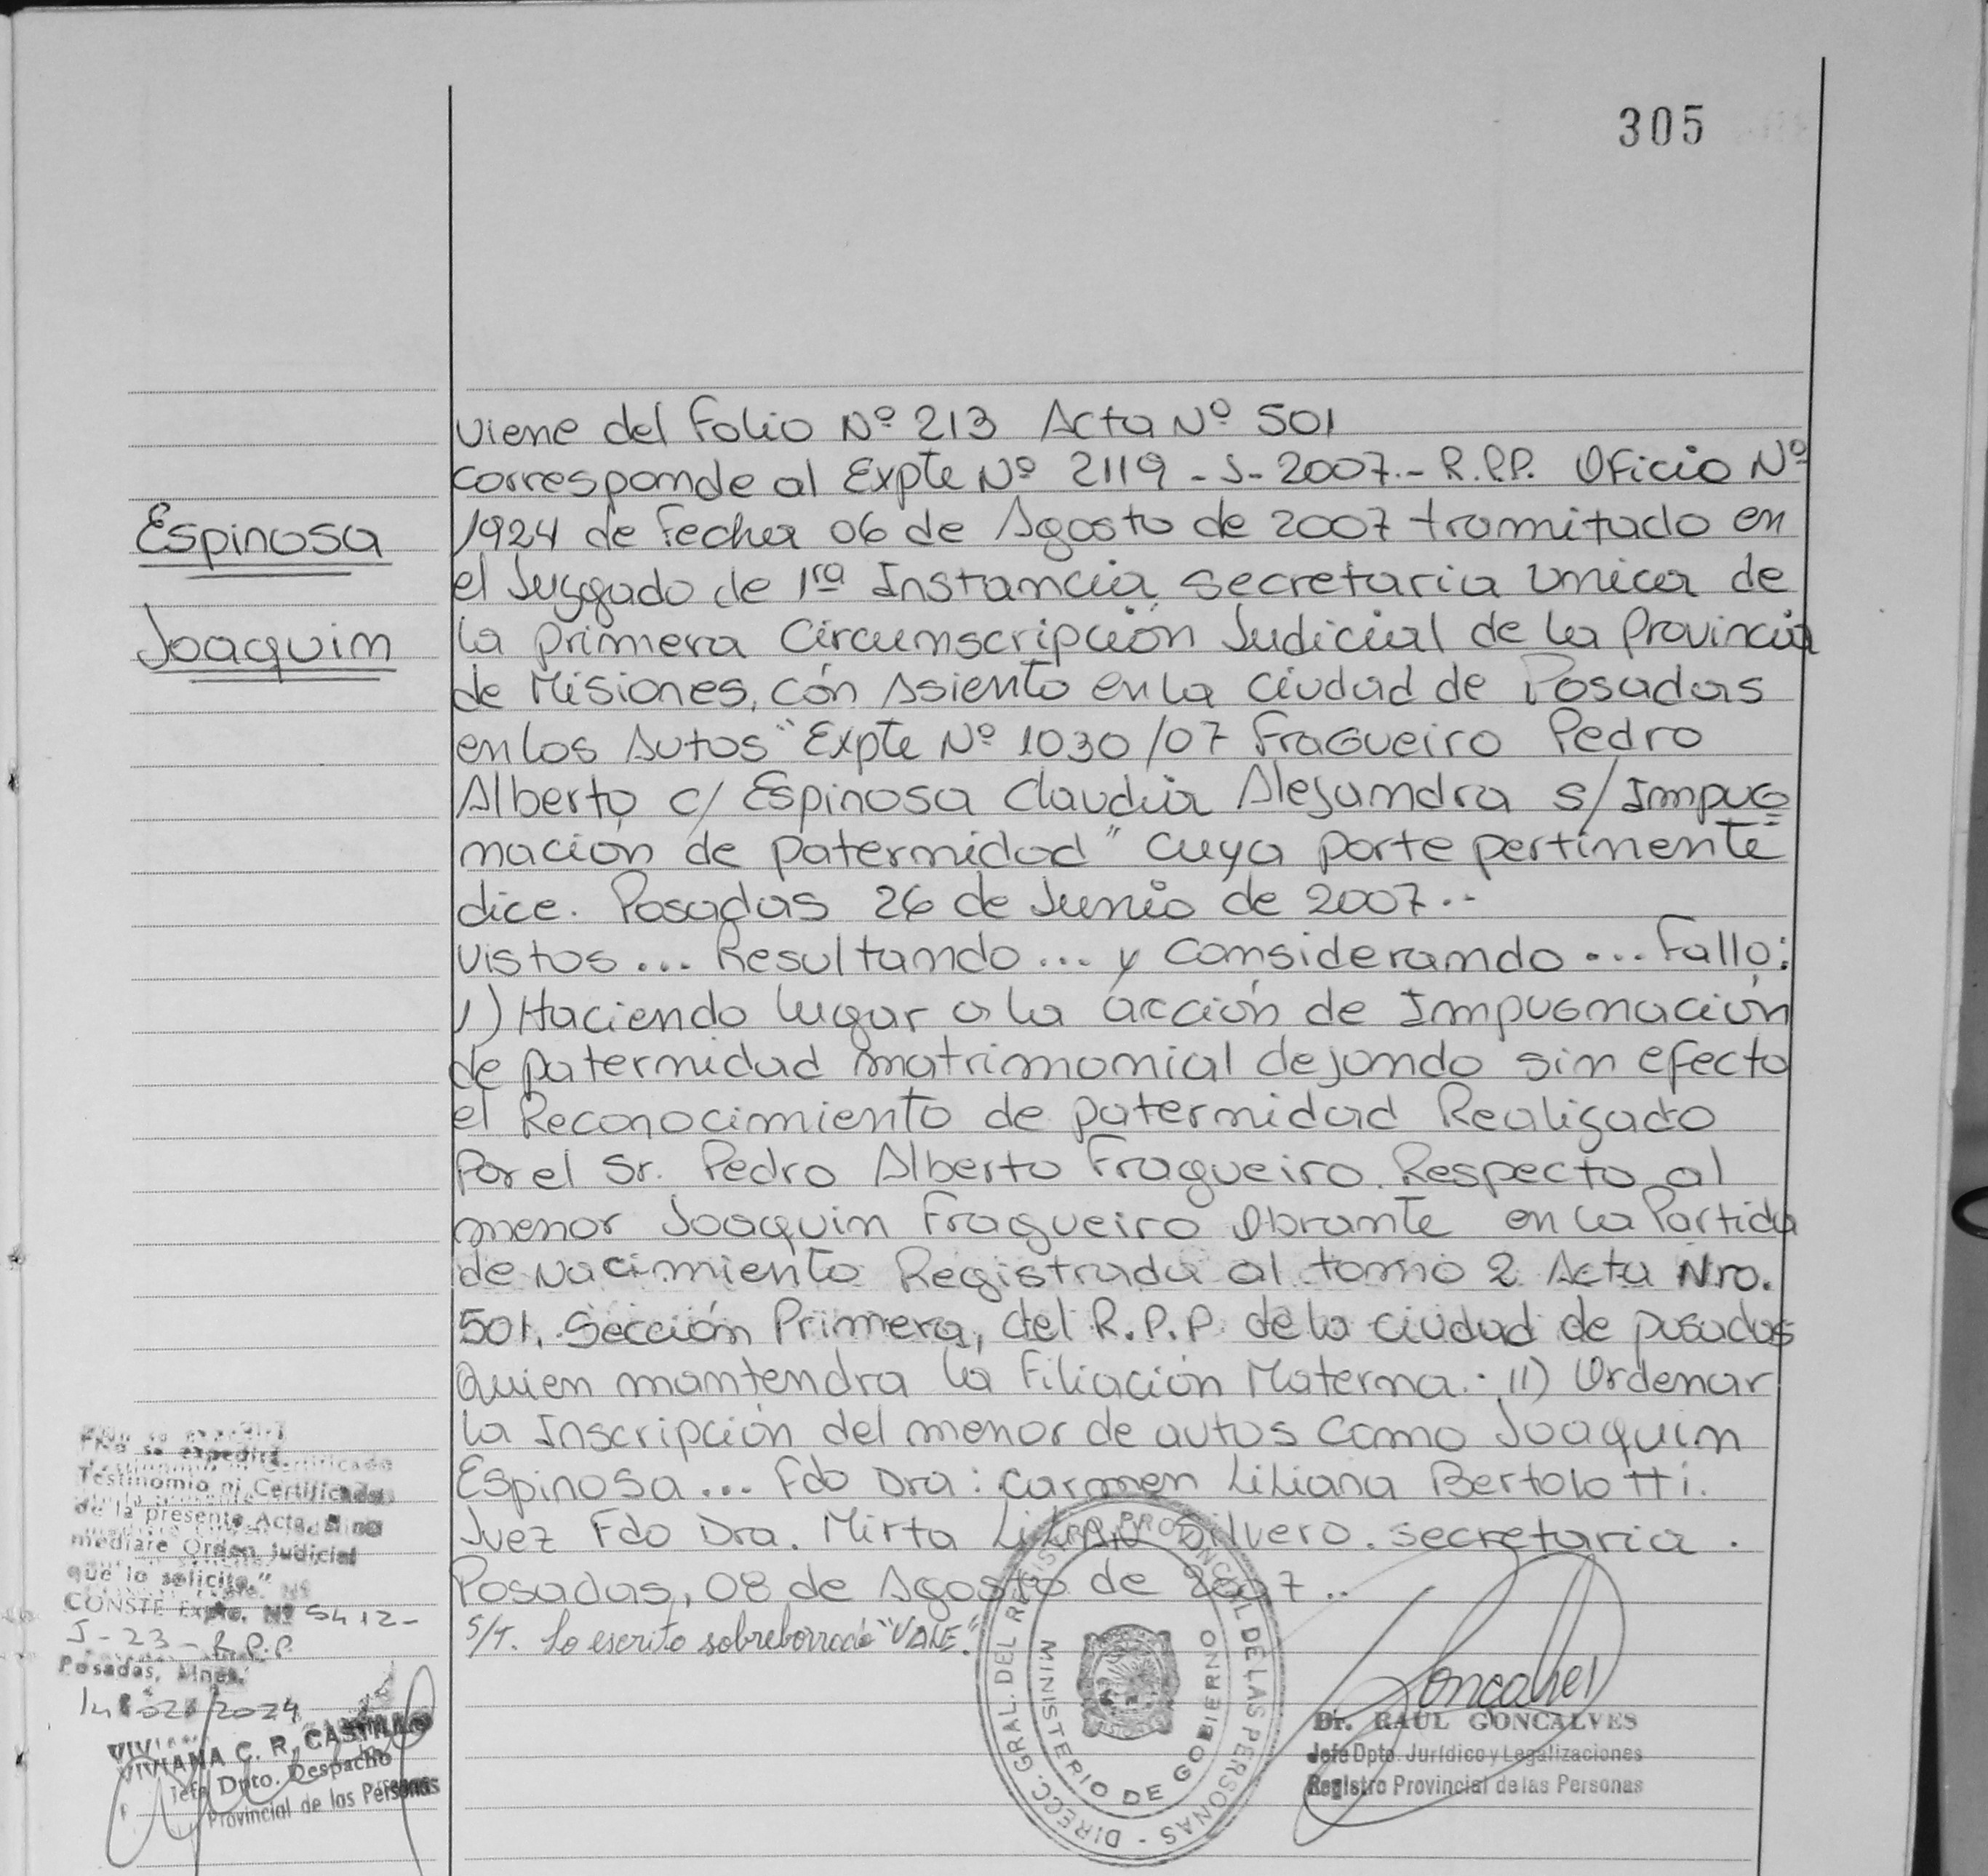 305
Espinosa
Joaquim
Viene del Folio Nº 213 Acta Nº 501
corresponde al Expte Nº 2119-J-2007.- R.P.P. Oficio Nº
1924 de Fecha 06 de Agosto de 2007 tramitado en
el Juzgado de 1ra Instancia, secretaria Unica de
la primera Circunscripción Judicial de la Provincia
de Misiones, cón Asiento en la Ciudad de Posadas
en los Autos "Expte Nº 1030/07 Fragueiro Pedro
Alberto c/ Espinosa Claudia Alejandra s/ Impug=
nación de paternidad" cuya parte pertinente
dice. Posadas 26 de Junio de 2007..-
Vistos... Resultando... y Considerando... Fallo:
1) Haciendo lugar a la acción de Impugnación
de paternidad matrimonial dejando sin efecto
el Reconocimiento de paternidad Realizado
Por el Sr. Pedro Alberto Fragueiro. Respecto al
menor Joaquin Fragueiro Obrante en la Partida
de Nacimiento Registrada al tomo 2 Acta Nro.
501. Sección Primera, del R.P.P. de la ciudad de posadas
Quien mantendra la Filiación Materna.- 11) Ordenar
la Inscripción del menor de autos como Joaquin
Espinosa... Fdo Dra: Carmen Liliana Bertolotti.
Juez Fdo Dra. Mirta Lilian Silvero. secretaria.
Posadas, 08 de Agosto de 2007..
S/T. Lo escrito sobreborrado "VALE."
No se expedirá
Testimonio ni Certificado
de la presente Acta, si no
mediare Orden Judicial
que lo solicite."
CONSTE Expte. Nº 5412-
J-23-R.P.P.
Posadas, Mnes.
14 02 2024
VIVIANA C. R. CASTILLO
Jefe Dpto. Despacho
Provincial de las Personas
DIRECC. GRAL. DEL REGISTRO PROVINCIAL DE LAS PERSONAS -
MINISTERIO DE GOBIERNO
MISIONES
Dr. RAUL GONCALVES
Jefe Dpto. Jurídico y Legalizaciones
Registro Provincial de las Personas